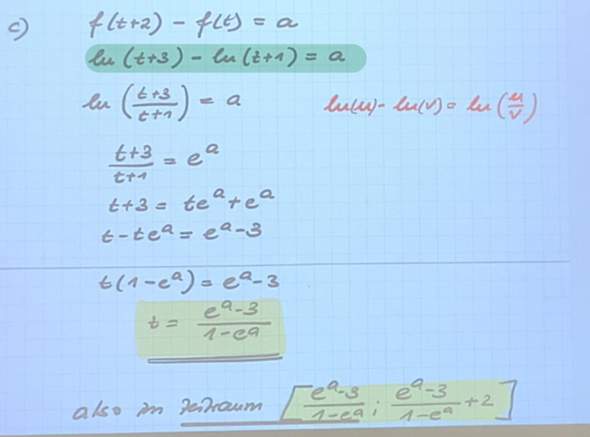 c) f(t+2) - f(t) = a
ln (t+3) - ln (t+1) = a
ln (t+3/t+1) = a ln(u) - ln(v) = ln (u/v)
t+3/t+1 = e^a
t+3 = te^a + e^a
t - te^a = e^a - 3
t(1-e^a) = e^a - 3
t = e^a-3/1-e^a
also im Zeitraum [e^a-3/1-e^a ; e^a-3/1-e^a + 2]